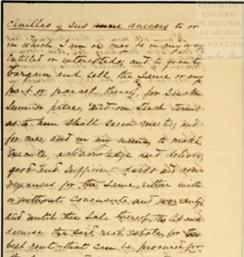 Cenillas y sus anceers to or
in which I am or may be in any way
entitled or interested; and to grant,
bargain and sell the same or any
part or parcel thereof, for such
sum or price, and on such terms
as to him shall seem meet; and
for me, and in my name, to make
execute, acknowledge and deliver
good and sufficient deeds and con-
veyances for the same, either with
or without covenants, and warranty;
and until the sale thereof, to let and
demise the said real estate, for the
best rent that can be procured for